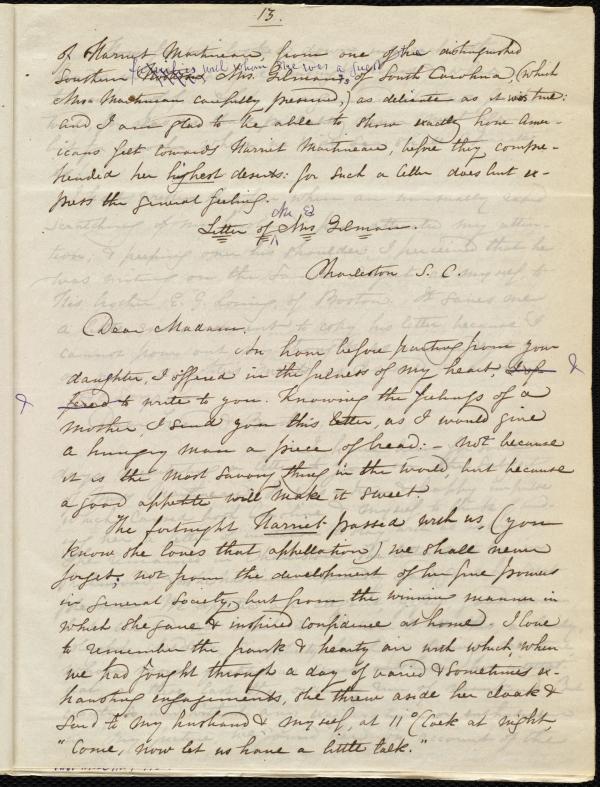 13.
of Harriet Martineau, from one of the distinguished
families with whom she was a guest
Southern Mrs. Gilman's, of South Carolina, (which
Mrs Martineau carefully preserved,) as delicate as it is true:
and I am glad to be able to show exactly how Amer-
icans felt towards Harriet Martineau, before they compre-
hended her highest deserts: for such a letter does but ex-
press the general feeling.
Letter of Mrs Gilman.
Charleston S. C.
Dear Madam,
An hour before parting from your
daughter, I offered in the fulness of my heart, &
& to write to you. Knowing the feelings of a
mother, I send you this letter, as I would give
a hungry man a piece of bread:- not because
it is the most savory thing in the world, but because
a good appetite will make it sweet.
The fortnight Harriet passed with us, (you
know she loves that appellation) we shall never
forget; not from the development of her fine powers
in general society, but from the winning manner in
which she gave & inspired confidence at home. I love
to remember the frank & hearty air with which, when
we had fought through a day of varied & sometimes ex-
hausting engagements, she threw aside her cloak &
said to my husband & myself, at 11 o'Clock at night,
"Come, now let us have a little talk."